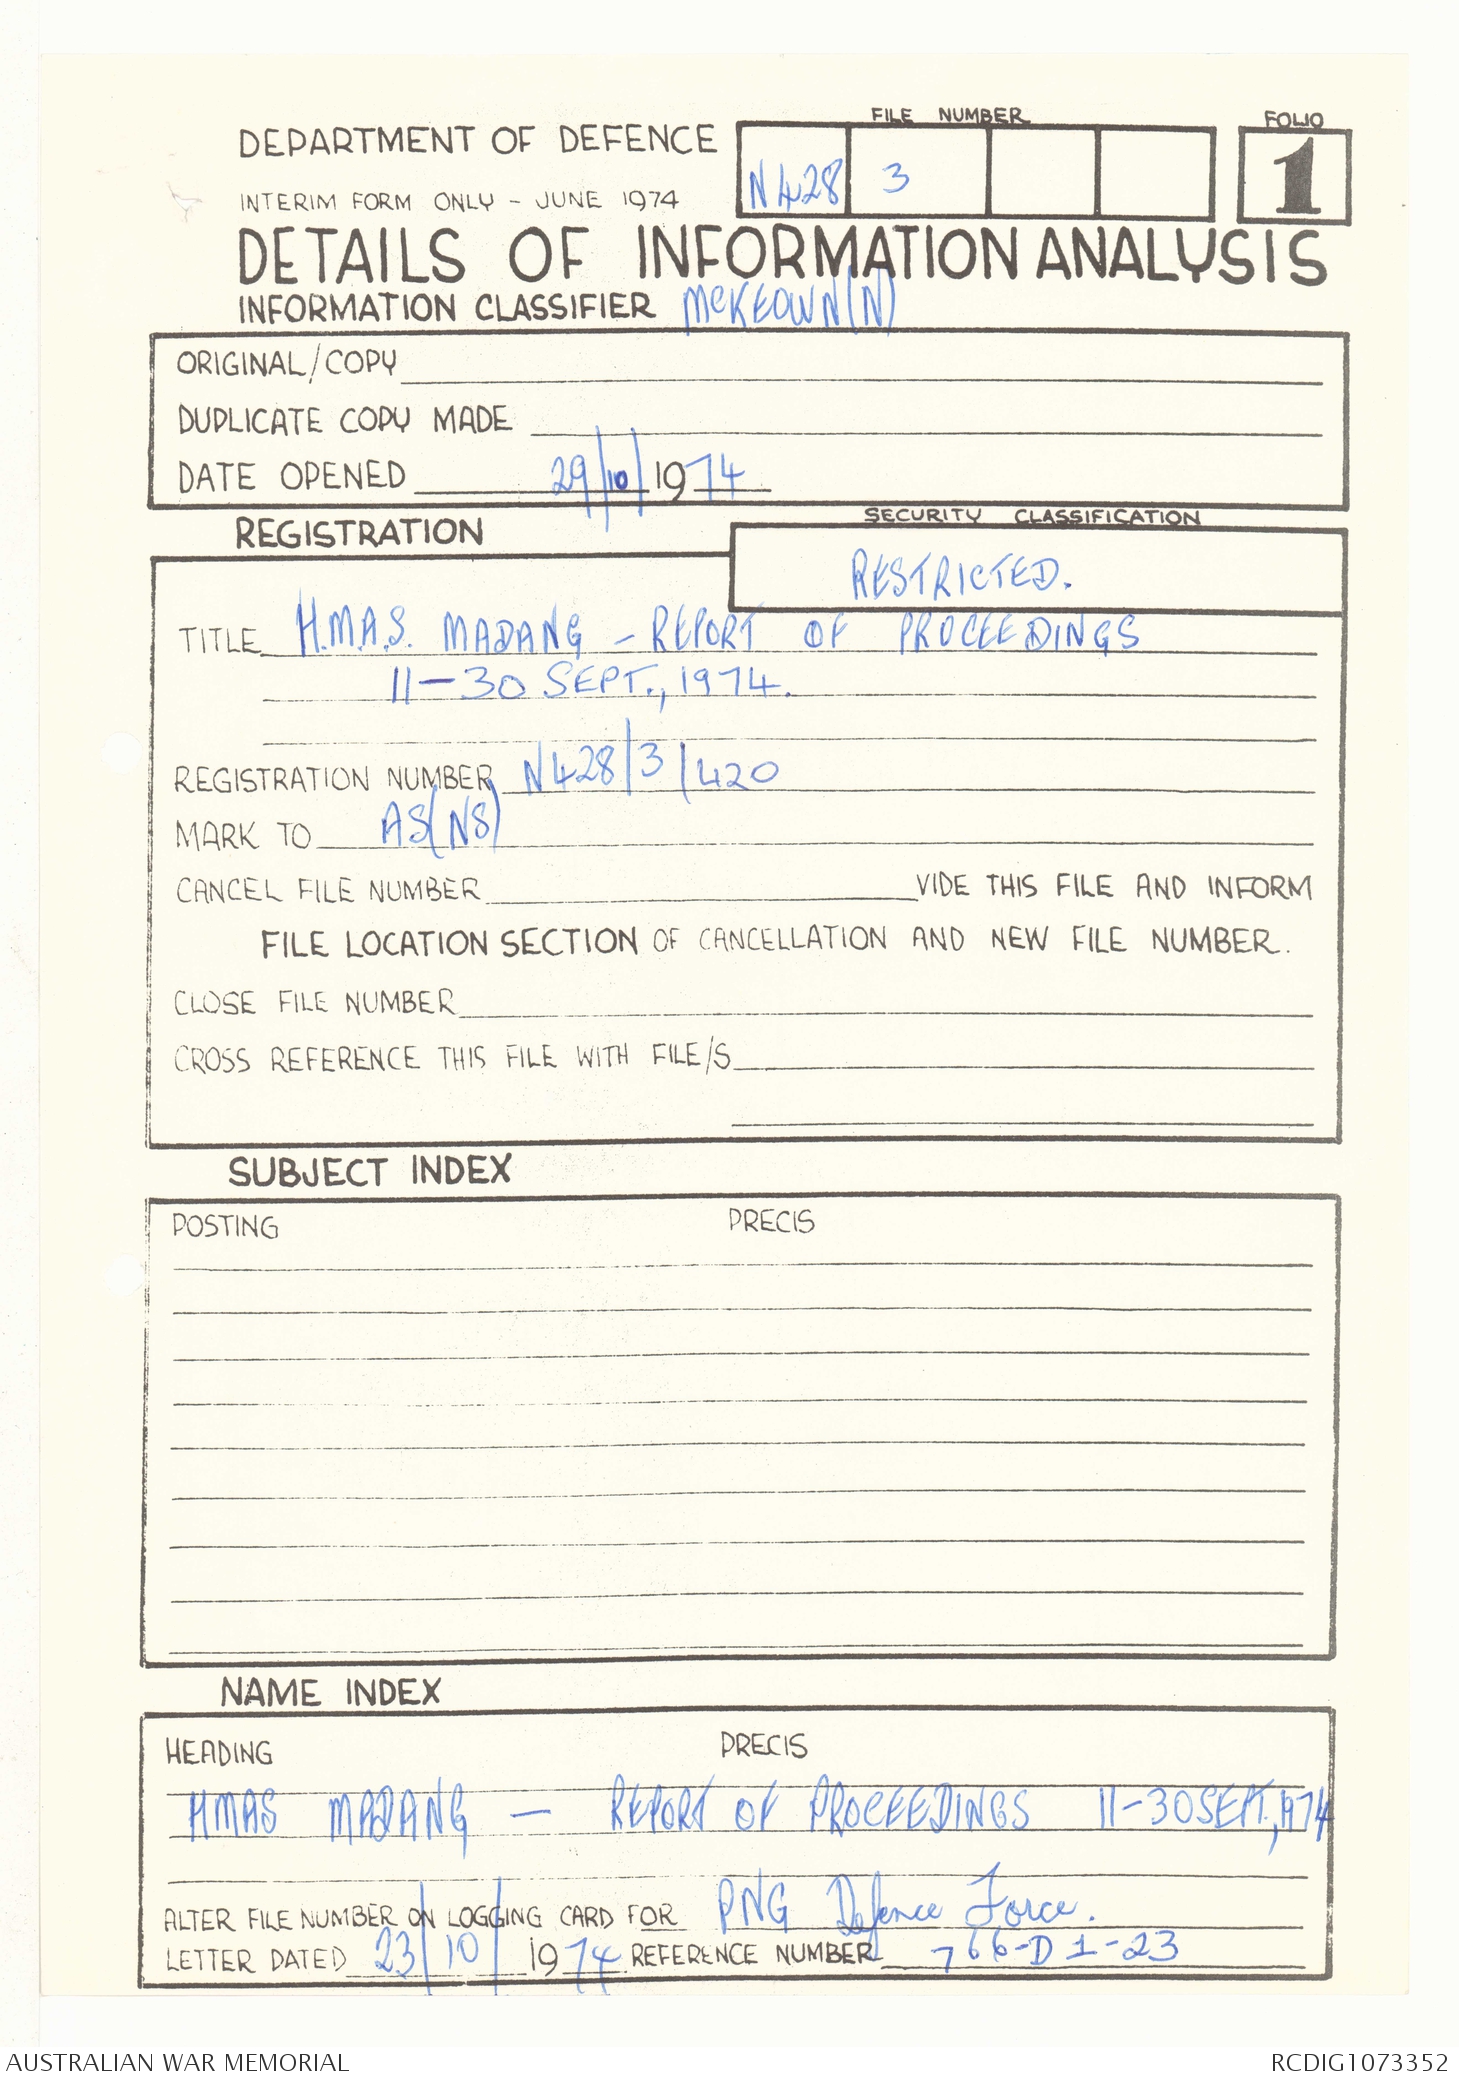 FILE NUMBER
FOLIO
DEPARTMENT OF DEFENCE
N428 3
1
INTERIM FORM ONLY - JUNE 1974
DETAILS OF INFORMATION ANALYSIS
INFORMATION CLASSIFIER McKEOWN(N)
ORIGINAL/COPY
DUPLICATE COPY MADE
DATE OPENED 29/10/1974
REGISTRATION
SECURITY CLASSIFICATION
RESTRICTED.
TITLE H.M.A.S. MADANG - REPORT OF PROCEEDINGS
11-30 SEPT., 1974.
REGISTRATION NUMBER N428/3/420
MARK TO AS(NS)
CANCEL FILE NUMBER VIDE THIS FILE AND INFORM
FILE LOCATION SECTION OF CANCELLATION AND NEW FILE NUMBER.
CLOSE FILE NUMBER
CROSS REFERENCE THIS FILE WITH FILE/S
SUBJECT INDEX
POSTING PRECIS
NAME INDEX
HEADING PRECIS
HMAS MADANG - REPORT OF PROCEEDINGS 11-30 SEPT, 1974
ALTER FILE NUMBER ON LOGGING CARD FOR PNG Defence Force.
LETTER DATED 23/10/1974 REFERENCE NUMBER 766-D1-23
AUSTRALIAN WAR MEMORIAL
RCDIG1073352